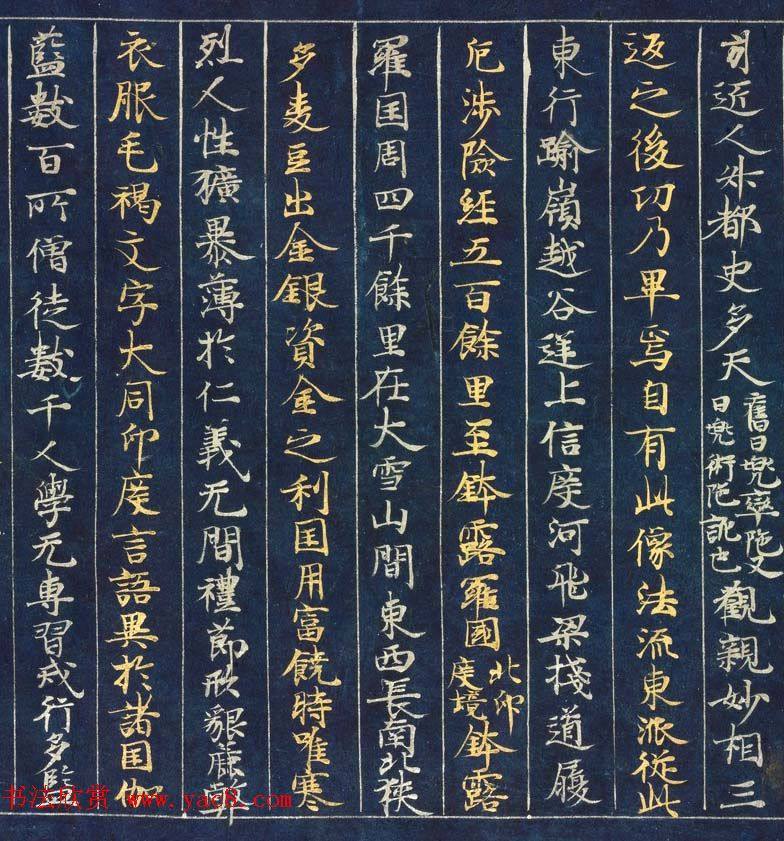 引近人㭍都史多天舊曰兜率陁又曰兜術陁訛也觀親妙相三
返之後功乃畢焉自有此像法流東派從此
東行踰嶺越谷逆上信度河飛梁棧道履
危涉險經五百餘里至鉢露羅國北印度境鉢露
羅国周四千餘里在大雪山間東西長南北狹
多麦豆出金銀資金之利国用富饒時唯寒
烈人性獷暴薄於仁義无間禮節形貌麁弊
衣服毛褐文字大同印度言語異於諸国伽
藍數百所僧徒數千人學无專習戒行多監
书法欣赏 www.yac8.com